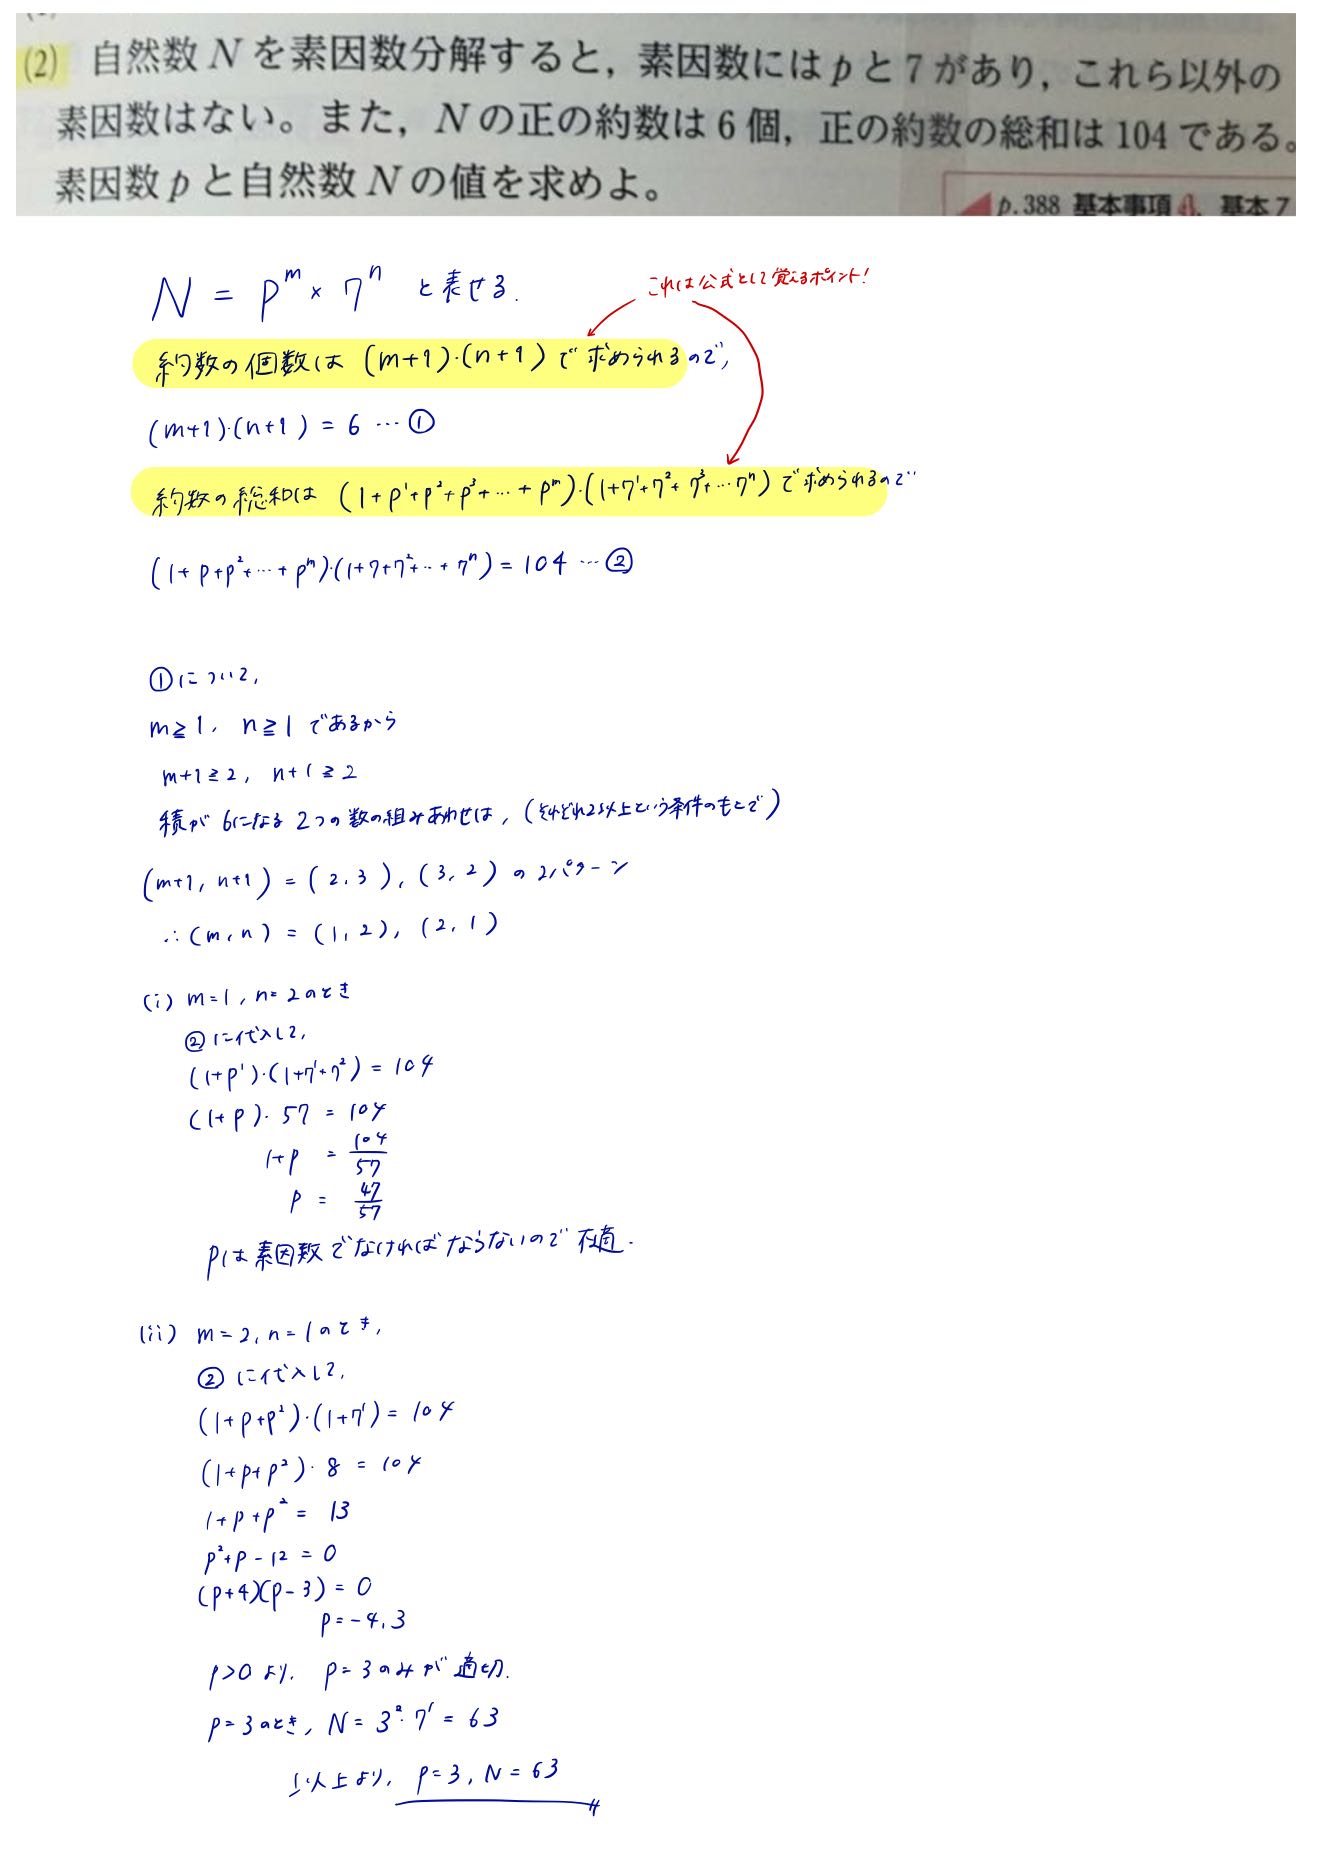 (2) 自然数 N を素因数分解すると，素因数には p と 7 があり，これら以外の
素因数はない。また，N の正の約数は 6 個，正の約数の総和は 104 である。
素因数 p と自然数 N の値を求めよ。
p.388 基本事項 4，基本 7
N = p^m × 7^n と表せる.
これは公式として覚えるポイント!
約数の個数は (m+1)・(n+1) で求められるので,
(m+1)・(n+1) = 6 … ①
約数の総和は (1+p^1+p^2+p^3+…+p^m)・(1+7^1+7^2+7^3+…7^n) で求められるので
(1+p+p^2+…+p^m)・(1+7+7^2+…+7^n) = 104 … ②
①について,
m≧1, n≧1 であるから
m+1≧2, n+1≧2
積が6になる2つの数の組みあわせは, (それぞれ2以上という条件のもとで)
(m+1, n+1) = (2, 3), (3, 2) の2パターン
∴ (m, n) = (1, 2), (2, 1)
(i) m=1, n=2のとき
②に代入して,
(1+p^1)・(1+7^1+7^2) = 104
(1+p)・57 = 104
1+p = 104/57
p = 47/57
pは素因数でなければならないので不適.
(ii) m=2, n=1のとき,
②に代入して,
(1+p+p^2)・(1+7^1) = 104
(1+p+p^2)・8 = 104
1+p+p^2 = 13
p^2+p-12 = 0
(p+4)(p-3) = 0
p=-4, 3
p>0より, p=3のみが適切.
p=3のとき, N = 3^2・7^1 = 63
以上より, p=3, N=63